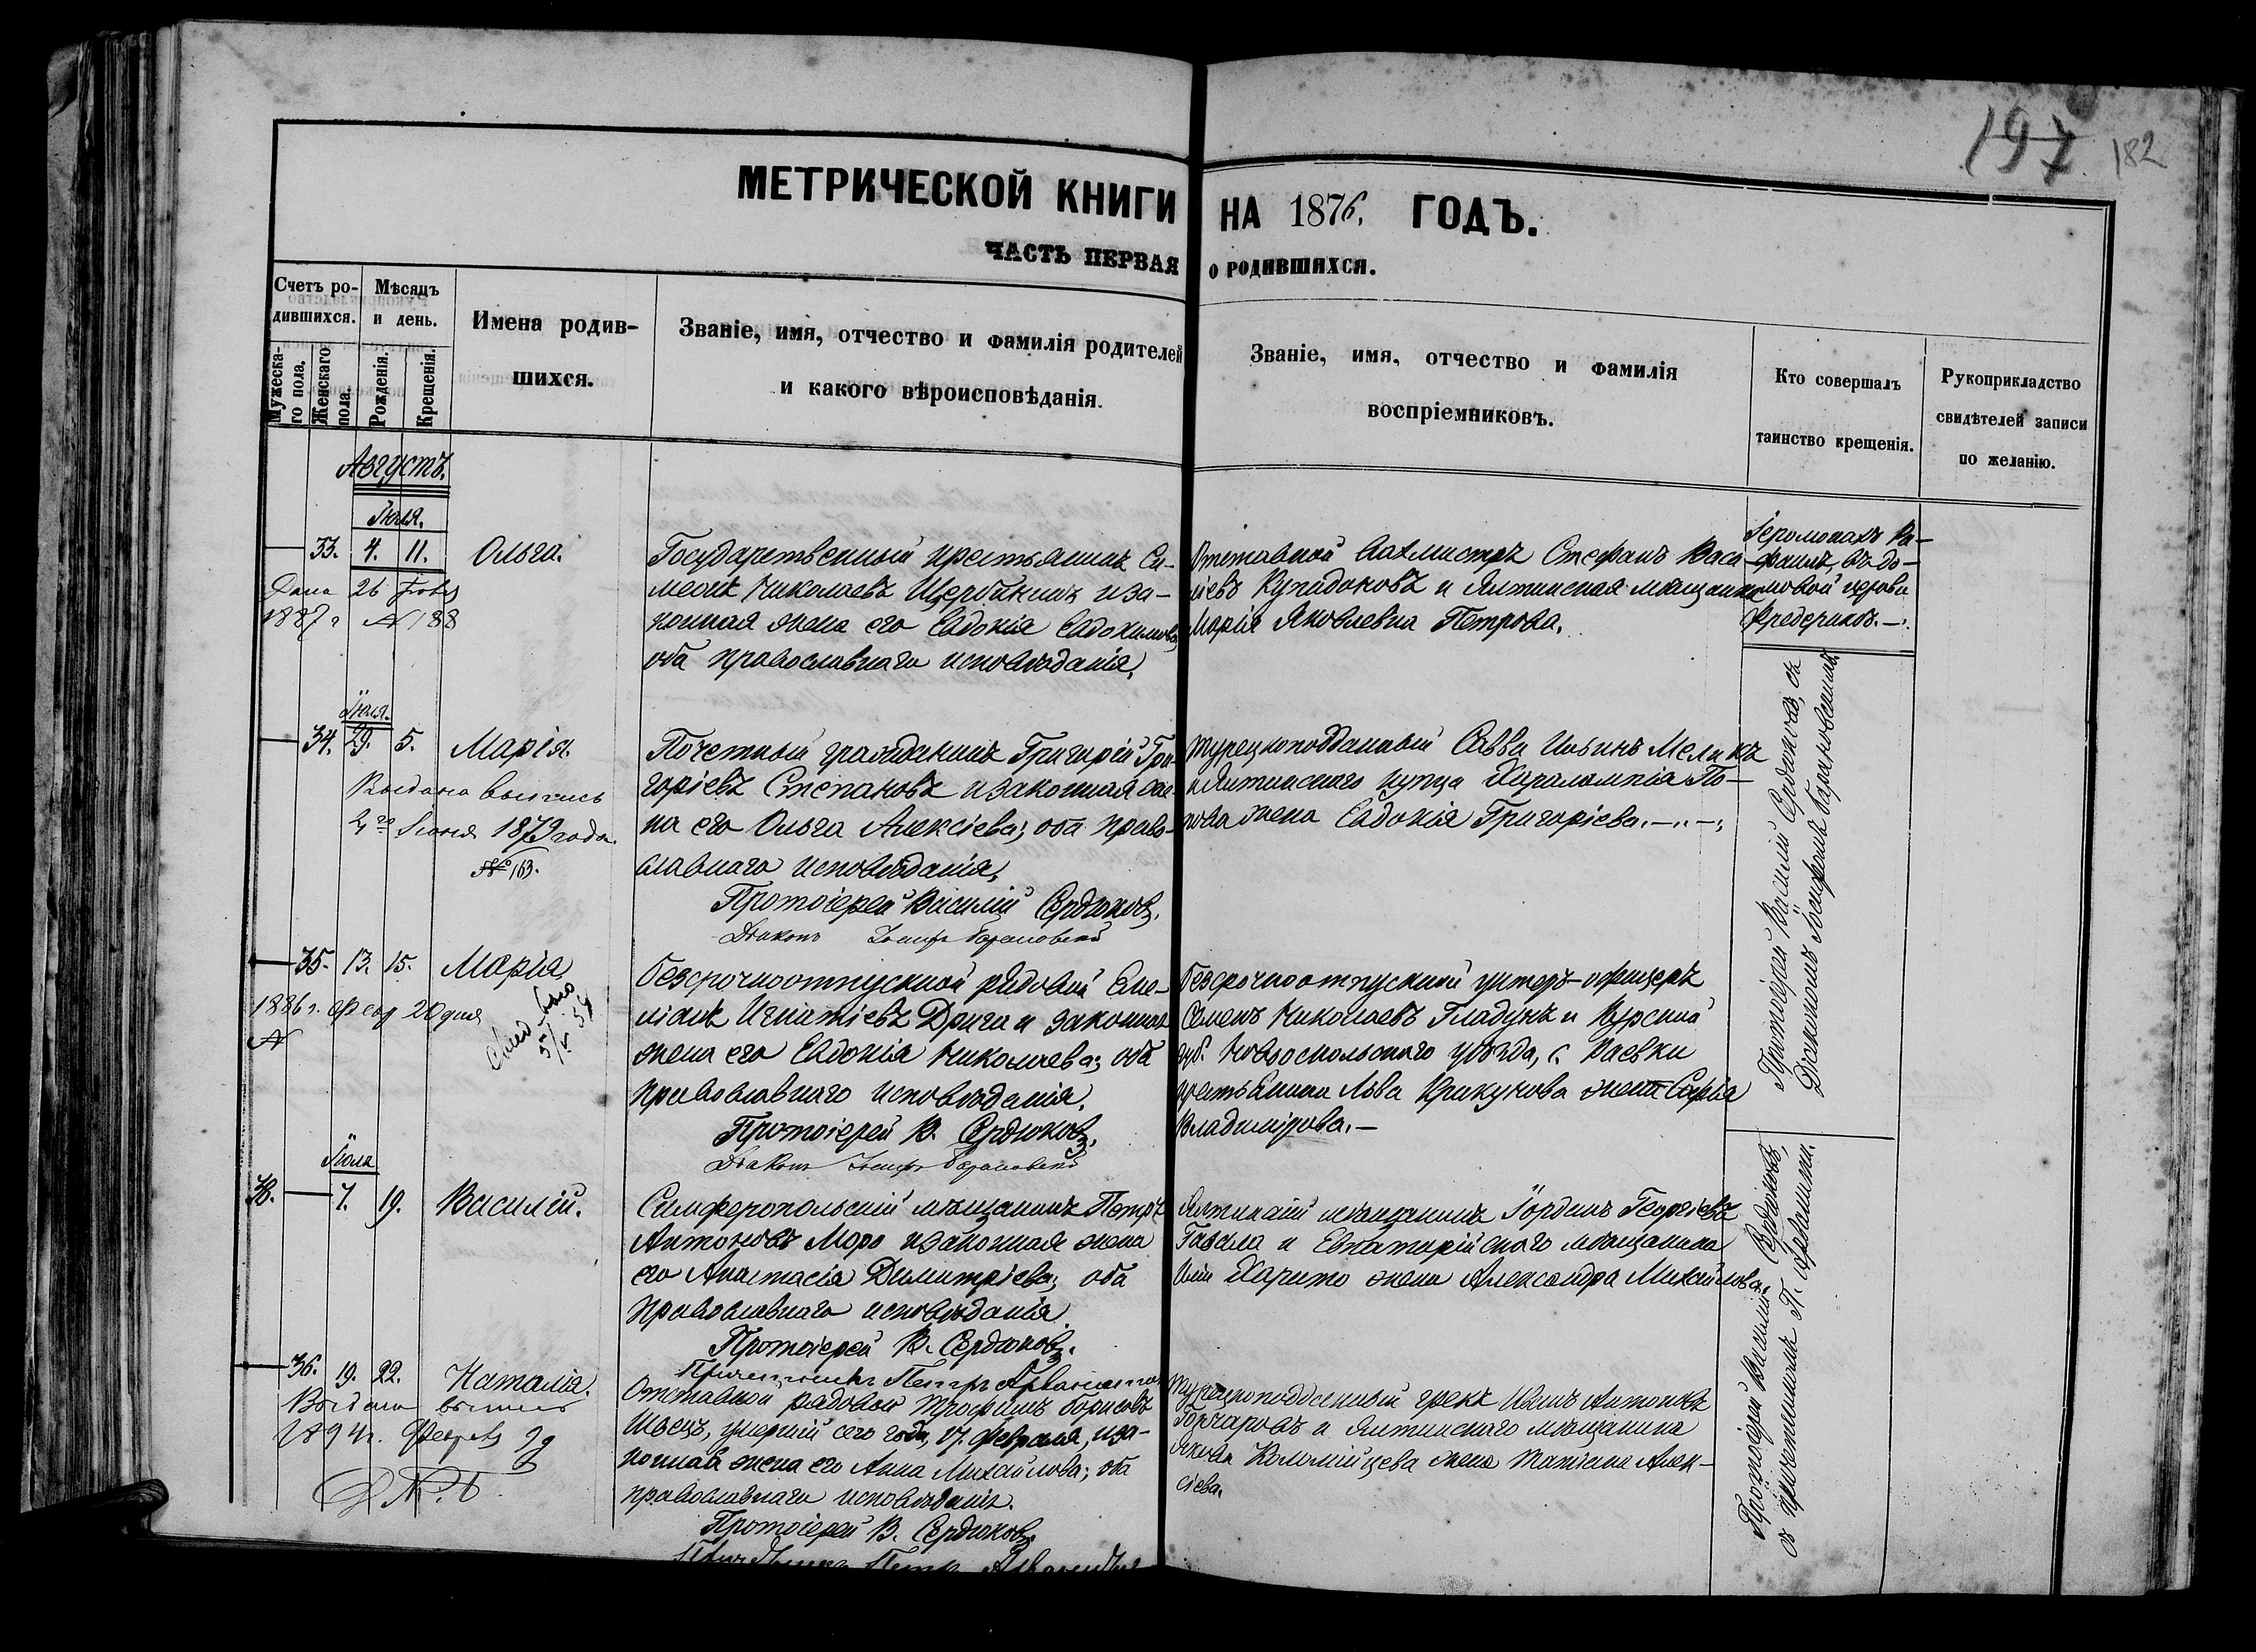 197 182
МЕТРИЧЕСКОЙ КНИГИ НА 1876. ГОДЪ.
ЧАСТЬ ПЕРВАЯ О РОДИВШИХСЯ.
Счетъ ро-
дившихся.
Мужеска-
го пола.
Женскаго
пола.
Мѣсяцъ
и день.
Рожденія.
Крещенія.
Имена родив-
шихся.
Званіе, имя, отчество и фамилія родителей
и какого вѣроисповѣданія.
Званіе, имя, отчество и фамилія
воспріемниковъ.
Кто совершалъ
таинство крещенія.
Рукоприкладство
свидѣтелей записи
по желанію.
Августъ.
Іюля.
33. 4. 11. Ольга.
Дана 26
1887 г № 188
Государственный крестьянинъ Си-
меонъ Николаевъ Щербининъ и за-
конная жена его Евдокія Евдокимова,
оба православнаго исповѣданія.
Отставной Вахмистръ Стефанъ Васи-
льевъ и Ялтинская мѣщанка
Марія Яковлевна Петрова.
Іеромонахъ Ра-
фаилъ, въ до-
мовой церкви
Фредерикъ.
Іюля.
34. 29. 5. Марія.
Выдана выпись
4го Іюня 1879 года.
№ 163.
Почетный гражданинъ Григорій Гри-
горіевъ Степановъ и законная же-
на его Ольга Алексіева; оба право-
славнаго исповѣданія,
Протоіерей Василій Сердюковъ.
Діаконъ Іосифъ Барановскій
Турецкоподданный Савва Ильинъ Меликъ
и Ялтинскаго купца Харалампія По-
пова жена Евдокія Григоріева.
Протоіерей Василій Сердюковъ, съ
Діакономъ Іосифомъ Барановскимъ.
35. 13. 15. Марія
1886 г. Фев 20 дня
№
5/V 34
безсрочноотпускной рядовой Еме-
ліанъ Игнатіевъ Дрига и законная
жена его Евдокія Николаева; оба
православнаго исповѣданія.
Протоіерей В. Сердюковъ.
Діаконъ Іосифъ Барановскій
безсрочноотпускной унтеръ-офицеръ
Семенъ Николаевъ Гладунъ и Курской
губ. Новооскольскаго уѣзда, с. Раевки
крестьянина Льва Крикунова жена Софія
Владимірова.
Іюля
38. 7. 19. Василій.
Симферопольскій мѣщанинъ Петръ
Антоновъ Моро и законная жена
его Анастасія Димитріева; оба
православнаго исповѣданія.
Протоіерей В. Сердюковъ.
Причетникъ Петръ
Ялтинскій мѣщанинъ Іорданъ Георгіевъ
и Евпаторійскаго мѣщанина
Иліи Харито жена Александра Михайлова.
Протоіерей Василій Сердюковъ,
съ причетникомъ П.
36. 19. 22. Наталія.
Выдана выпись
1894 г. Февр 28
Отставной рядовой Трофимъ Борисовъ
Швецъ, умершій сего года, 17. Февраля, и за-
конная жена его Анна Михайлова; оба
православнаго исповѣданія.
Протоіерей В. Сердюковъ
Турецкоподданный грекъ Иванъ Антоновъ
Гончаровъ и Ялтинскаго мѣщанина
Якова Коломійцева жена Татіана Алек-
сіева.